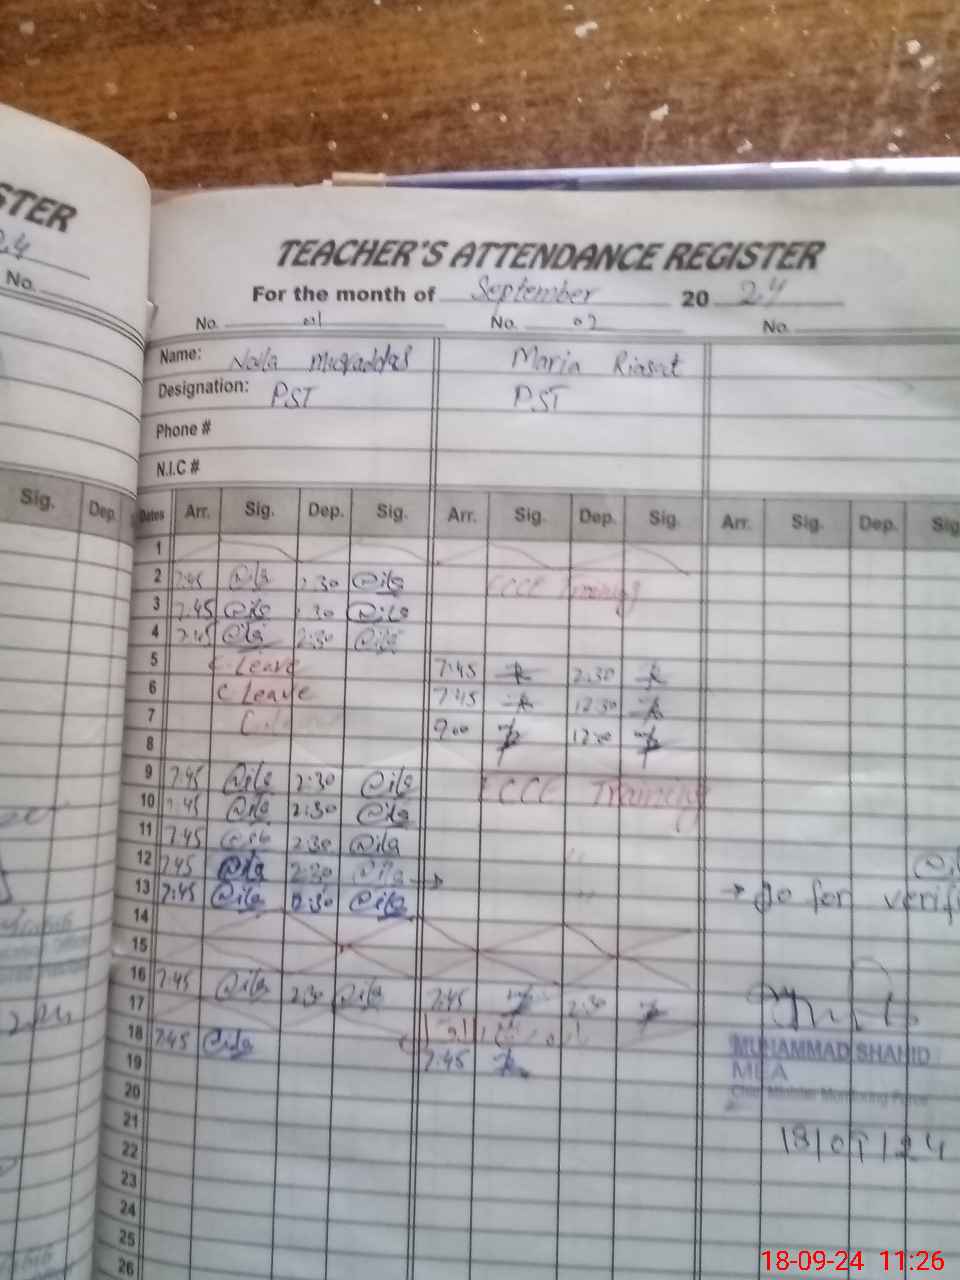 STER
24
No.
Sig. Dep.
TEACHER'S ATTENDANCE REGISTER
For the month of September 20 24
No. 01 No. 02 No.
Name: Naila Muqaddas Maria Riasat
Designation: PST PST
Phone #
N.I.C #
Dates Arr. Sig. Dep. Sig. Arr. Sig. Dep. Sig. Arr. Sig. Dep. Sig
1
2 7:45 @ila 2:30 @ila ECCE Training
3 7:45 @ila 2:30 @ila
4 7:45 @ila 2:30 @ila
5 C Leave 7:45 2:30
6 C Leave 7:45 12:30
7 9:00 12:00
8
9 7:45 @ila 2:30 @ila ECCE Training
10 7:45 @ila 2:30 @ila
11 7:45 @ila 2:30 @ila
12 7:45 @ila 2:30 @ila
13 7:45 @ila 2:30 @ila → go for verifi
14
15
16 7:45 @ila 2:30 @ila 7:45 2:30
17
18 7:45 @ila 7:45
19
MUHAMMAD SHAHID
MEA
Chief Minister Monitoring Force
20
21
18/09/24
22
23
24
25
26
18-09-24 11:26